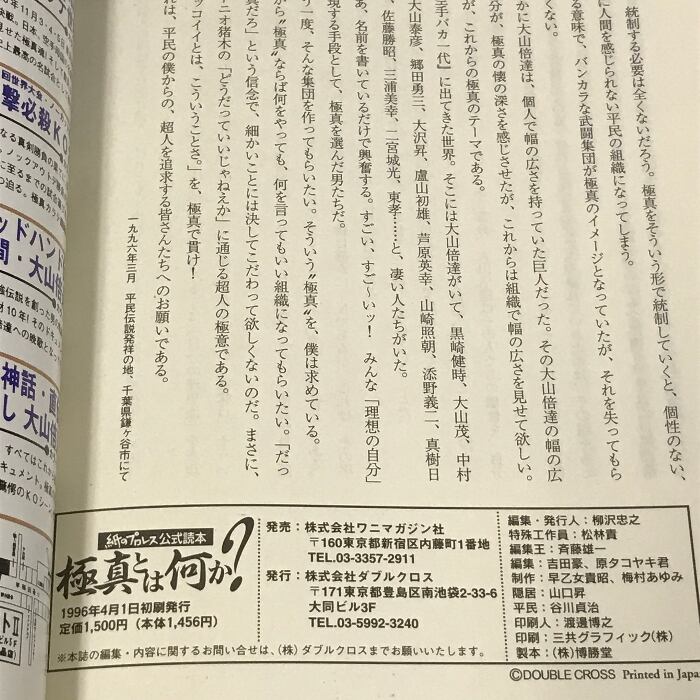 統制する必要は全くないだろう。極真をそういう形で統制していくと、個性のない、
に人間を感じられない平民の組織になってしまう。
る意味で、バンカラな武闘集団が極真のイメージとなっていたが、それを失ってもら
くない。
かに大山倍達は、個人で幅の広さを持っていた巨人だった。その大山倍達の幅の広
分が、極真の懐の深さを感じさせたが、これからは組織で幅の広さを見せて欲しい。
が、これからの極真のテーマである。
手バカ一代』に出てきた世界。そこには大山倍達がいて、黒崎健時、大山茂、中村
大山泰彦、郷田勇三、大沢昇、盧山初雄、芦原英幸、山崎照朝、添野義二、真樹日
、佐藤勝昭、三浦美幸、二宮城光、東孝……と、凄い人たちがいた。
あ、名前を書いているだけで興奮する。すごい、すご〜いッ! みんな「理想の自分」
現する手段として、極真を選んだ男たちだ。
う一度、そんな集団を作ってもらいたい。そういう〝極真〟を、僕は求めている。
から〝極真〟ならば何をやっても、何を言ってもいい組織になってもらいたい。「だっ
真だろ」という信念で、細かいことには決してこだわって欲しくないのだ。まさに、
ニオ猪木の「どうだっていいじゃねえか」に通じる超人の極意である。
ッコイイとは、こういうことさ。」を、極真で貫け!
れは、平民の僕からの、超人を追求する皆さんたちへのお願いである。
一九九六年三月 平民伝説発祥の地、千葉県鎌ヶ谷市にて
撃必殺KO
ッドハンド
間・大山倍
神話・直
し 大山倍
紙のプロレス公式読本
極真とは何か?
1996年4月1日初刷発行
定価1,500円(本体1,456円)
発売:株式会社ワニマガジン社
〒160東京都新宿区内藤町1番地
TEL.03-3357-2911
発行:株式会社ダブルクロス
〒171東京都豊島区南池袋2-33-6
大同ビル3F
TEL.03-5992-3240
※本誌の編集・内容に関するお問い合せは、(株)ダブルクロスまでお願いいたします。
編集・発行人:柳沢忠之
特殊工作員:松林貴
編集王:斉藤雄一
編集:吉田豪、原タコヤキ君
制作:早乙女貴昭、梅村あゆみ
隠居:山口昇
平民:谷川貞治
印刷人:渡邊博之
印刷:三共グラフィック(株)
製本:(株)博勝堂
©DOUBLE CROSS Printed in Japan